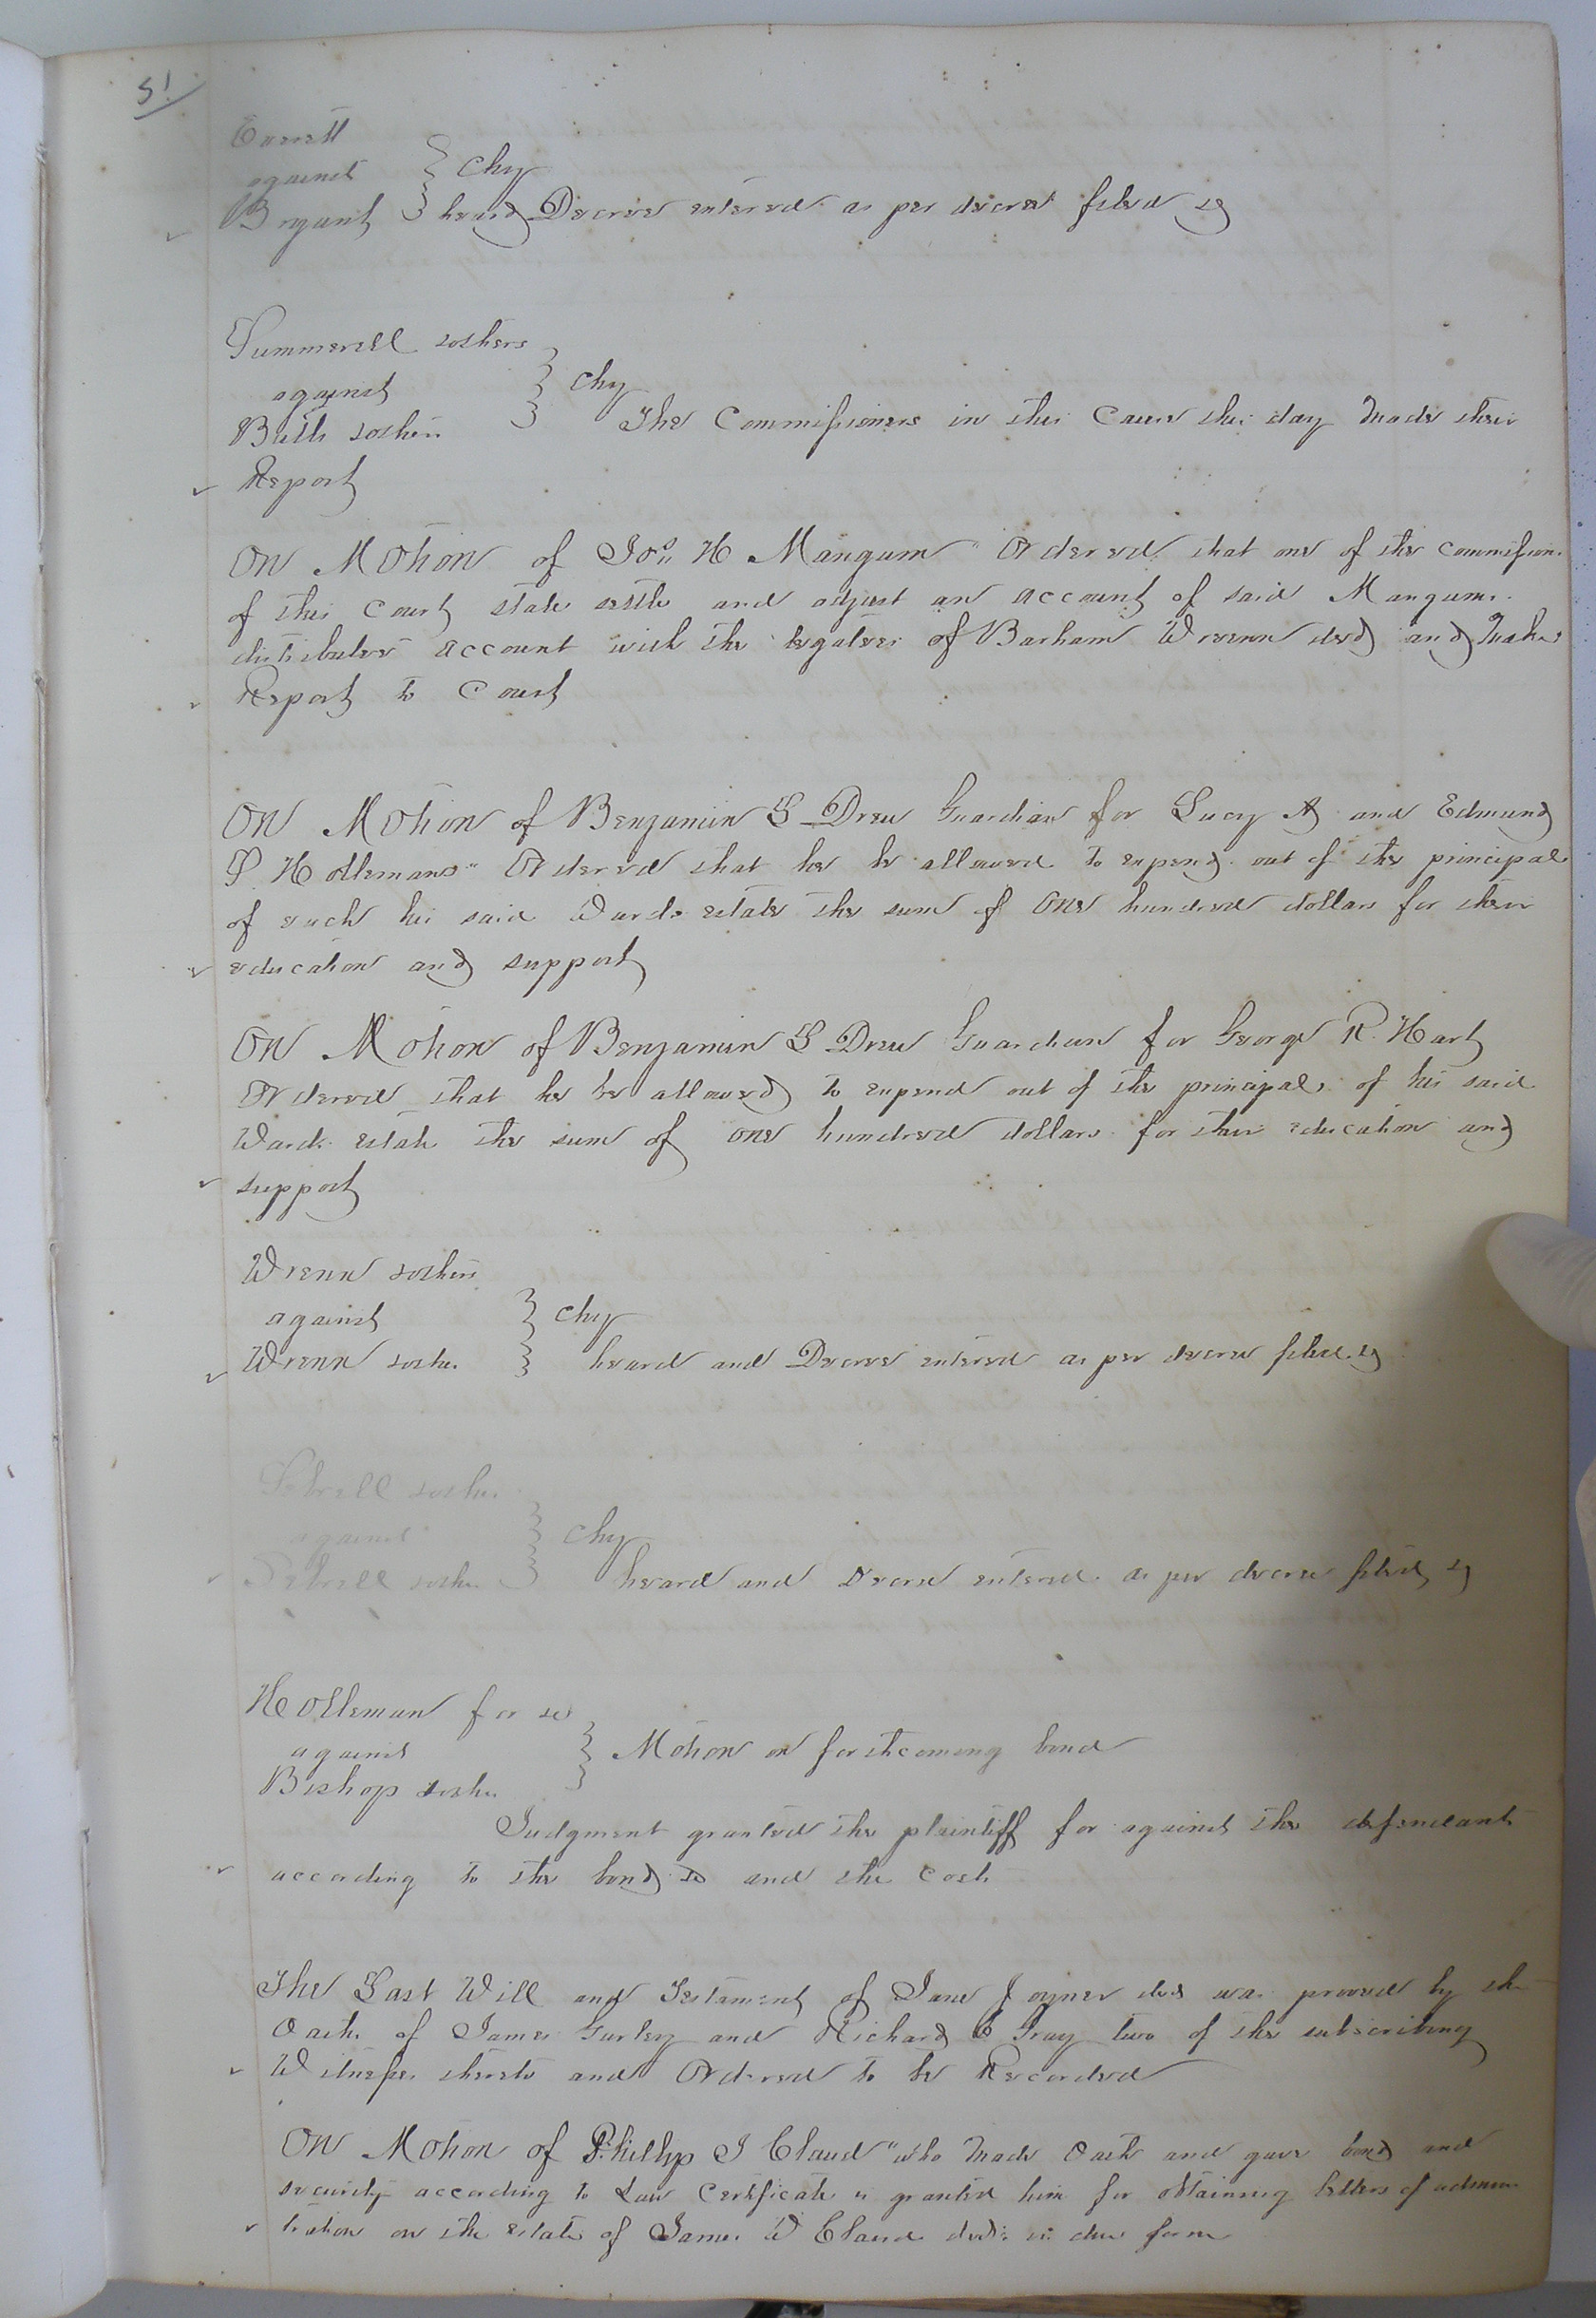 51
Everett
against } Chy
Bryant } heard Decree entered as per decree filed &
Summerell & others
against } Chy
Butts & others The Commissioners in this Cause this day made their
Report
On Motion of Jos. H Mangum " Ordered that one of the commission.
of this Court state settle and adjust an account of said Mangums.
distributee account with the legatees of Barham Wrenn decd and make
Report to Court
On Motion of Benjamin L Drew Guardian for Lucy A and Edmund
P. Hollemans " Ordered that he be allowed to expend out of the principal
of each his said Wards estate the sum of One hundred dollars for their
education and support
On Motion of Benjamin L Drew Guardian for George R. Hart
Ordered that he be allowed to expend out of the principals of his said
Wards estate the sum of one hundred dollars for their education and
support
Wrenn & others
against } Chy
Wrenn & others } heard and Decree entered as per decree filed &
& others
against } Chy
& others heard and Decree entered as per decree filed &
Holleman for &c
against } Motion on forthcoming bond
Bishop & others
Judgment granted the plaintiff for against the defendants
according to the bond &c and the Costs
The Last Will and Testament of Jane Joyner decd was prooved by the
Oaths of James Gurley and Richard E Gray two of the subscribing
Witnesses thereto and Ordered to be Recorded
On Motion of Phillip J Claud " who made Oath and gave bond and
security according to Law Certificate is granted him for obtaining letters of adminis
tration on the estate of James W Claud decd in due form